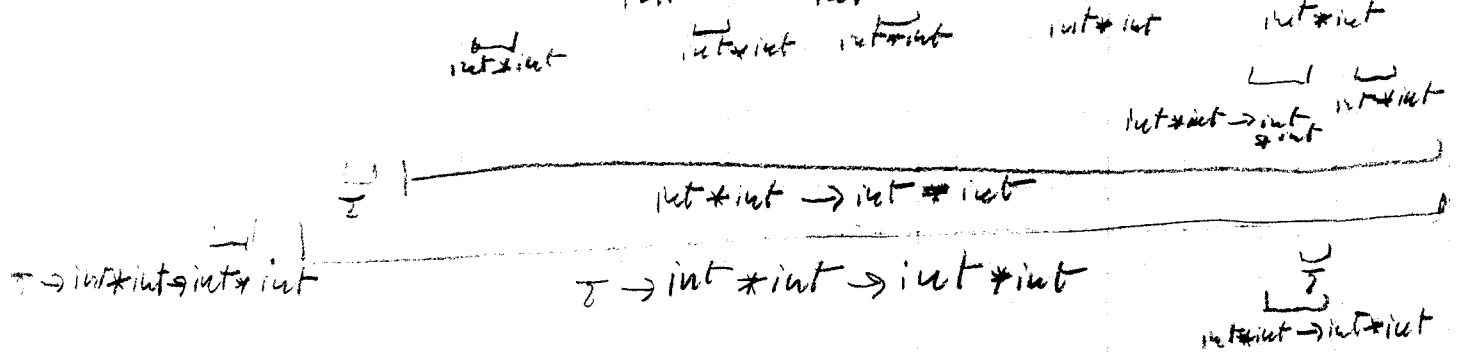 int*int int*int int*int int*int int*int
int*int → int *int int*int
τ int*int → int * int
τ → int*int → int*int τ → int *int → int *int τ
int*int → int*int